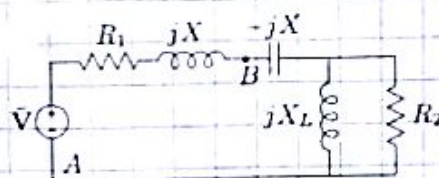 R₁ jX -jX
B
+
V̄ jX_L R₂
-
A